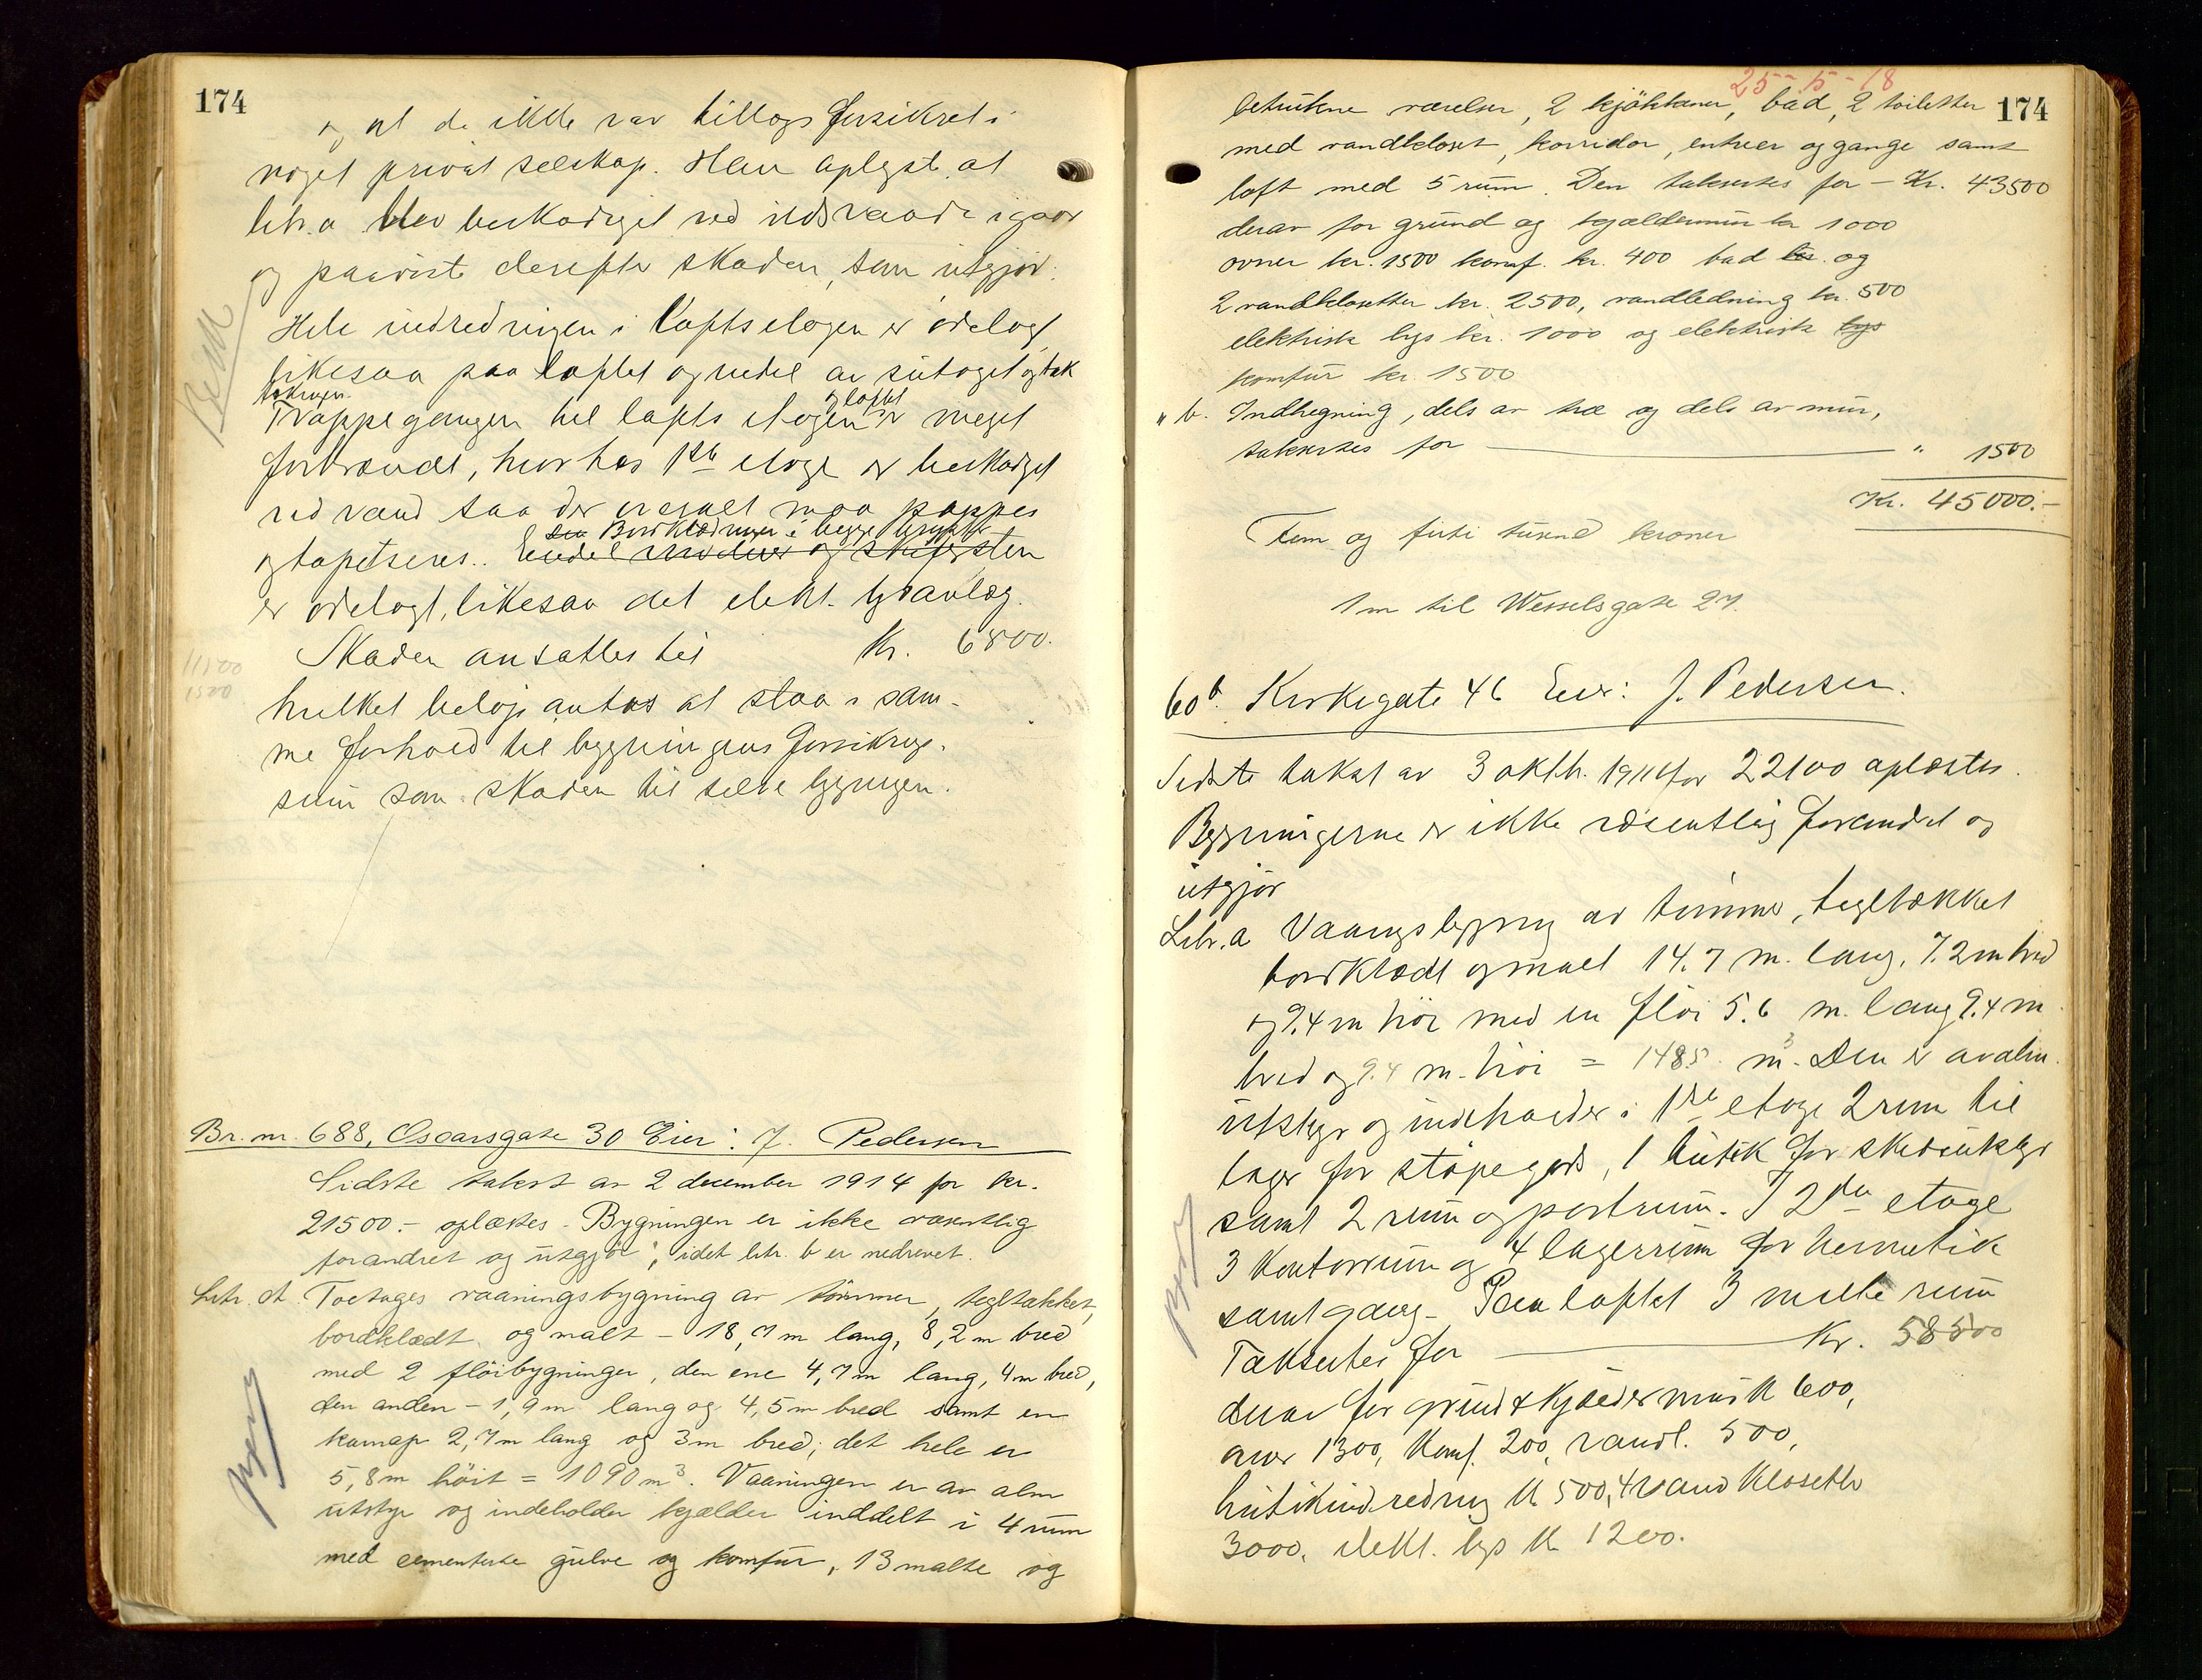 174
og at de ikke var tillægsforsikret i
noget privat selskap. Han oplyste, at
litr. a blev beskadiget ved ildsvaade igaar
og paaviste derefter skaden, som utgjør:
Hele indredningen i loftsetagen er ødelagt,
likesaa paa loftet og endel av sutaget og tak
Trappegangen til lofts etagen og loftet er meget
forbrændt, hvorhos 1ste etage er beskadiget
ved vand saa der overalt maa pappes
og tapetseres. Bordklædningen i begge
er ødelagt, likesaa det elekt. lysanlæg.
Skaden ansattes til Kr. 6800.
hvilket beløp antas at staa i sam-
me forhold til bygningens forsikrings-
sum som skaden til selve bygningen.
11500
1500
Br. nr. 688, Oscarsgate 30 Eier: J. Pedersen
Sidste takst av 2 december 1914 for kr.
21500.- oplæstes - Bygningen er ikke væsentlig
forandret og utgjør; idet litr. b er nedrevet.
Litr. A. Toetages vaaningsbygning av tømmer, tegltækket,
bordklædt og malt - 18,7 m lang, 8,2 m bred
med 2 fløibygninger, den ene 4,7 m lang, 4 m bred,
den anden - 1,9 m lang og 4,5 m bred samt en
karnap 2,7 m lang og 3 m bred; det hele er
5,8 m høit = 1090 m³. Vaaningen er av alm
utstyr og indeholder kjælder inddelt i 4 rum
med cementerte gulve og komfur, 13 malte og
25-5-18
174
betrukne værelser, 2 kjøkkener, bad, 2 toiletter
med vandkloset, korridor, entreer og gange samt
loft med 5 rum. Den takseres for - Kr. 43500
derav for grund og kjældermur kr 1000
ovner kr. 1500 komf. kr. 400 bad kr. og
2 vandklosetter kr. 2500, vandledning kr. 500
elektrisk lys kr. 1000 og elektrisk lys
komfur kr. 1500
" b. Indhegning, dels av træ og dels av mur,
takseres for " 1500
Kr. 45000.-
Fem og firti tusend kroner
1 m til Wesselsgate 27.
60b. Kirkegate 46 Eier: J. Pedersen.
Sidste takst av 3 oktb. 1911 for 22100 oplæstes.
Bygningerne er ikke væsentlig forandret og
utgjør
Litr. a Vaaningsbygning av tømmer, tegltækket
bordklædt og malt 14.7 m. lang, 7.2 m bred
og 9.4 m høi med en fløi 5.6 m. lang 9.4 m
bred og 9.4 m. høi = 1485 m³. Den er av alm.
utstyr og indeholder i 1ste etage 2 rum til
lager for støpegods, 1 butik for
samt 2 rum og portrum. I 2den etage
3 kontorrum og 4 lagerrum for hermetik
samt gang - Paa loftet 3 malte rum
Takseres for Kr. 58500
derav for grund & kjældermur k 600,
ovner 1300, Komf. 200, vandl. 500,
butikindredning k 500, 4 vandklosetter
3000, elekt. lys k 1200.